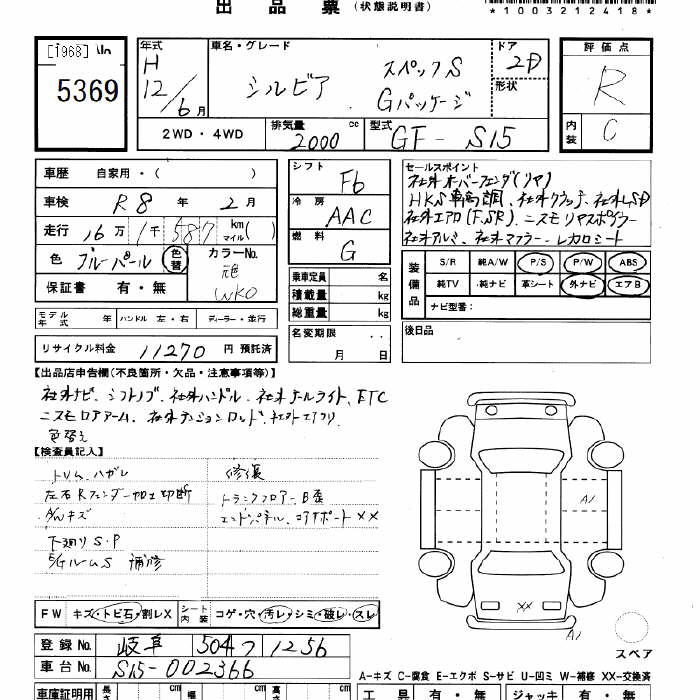 出品票（状態説明書）
*1003212418*
[1968]
5369
年式 H 12/6月
車名・グレード シルビア スペックS Gパッケージ
ドア 2D
形状
評価点 R
内装 C
2WD・4WD
排気量 2000 cc
型式 GF-S15
車歴 自家用・（ ）
車検 R8年2月
走行 16万1千587 km マイル（ ）
色 ブルーパール 色替 カラーNo. 元色 WK0
保証書 有・無
シフト F6
冷房 AAC
燃料 G
セールスポイント
社外オーバーフェンダ(リヤ)
HKS車高調、社外クラッチ、社外LSD
社外エアロ(F,S,R)、ニスモリヤスポイラー
社外アルミ、社外マフラー、レカロシート
装備品 S/R 純A/W P/S P/W ABS
純TV 純ナビ 革シート 外ナビ エアB
ナビ型番：
乗車定員 名
積載量 kg
総重量 kg
モデル年式 年 ハンドル 左・右 ディーラー・並行
名変期限 ・・ 月 日
後日品
リサイクル料金 11270 円 預託済
【出品店申告欄(不良箇所・欠品・注意事項等)】
社外ナビ、シフトノブ、社外ハンドル、社外テールライト、ETC
ニスモロアアーム、社外テンションロッド、社外エアクリ
色替え
【検査員記入】
トリム ハガレ
左右Rフェンダー加工切断
A/Wキズ
下廻りS・P
S/GルームS 補修
修復
トランクフロアー B歪
エンドパネル、コアサポート××
A1
××
A1
スペア
FW キズ・トビ石・割レX
シート内装 コゲ・穴・汚レ・シミ・破レ・スレ
登録No. 岐阜 504 フ 1256
車台No. S15-002366
A-キズ C-腐食 E-エクボ S-サビ U-凹ミ W-補修 XX-交換済
車庫証明用 長さ cm 幅 cm 高さ cm
工具 有・無 ジャッキ 有・無